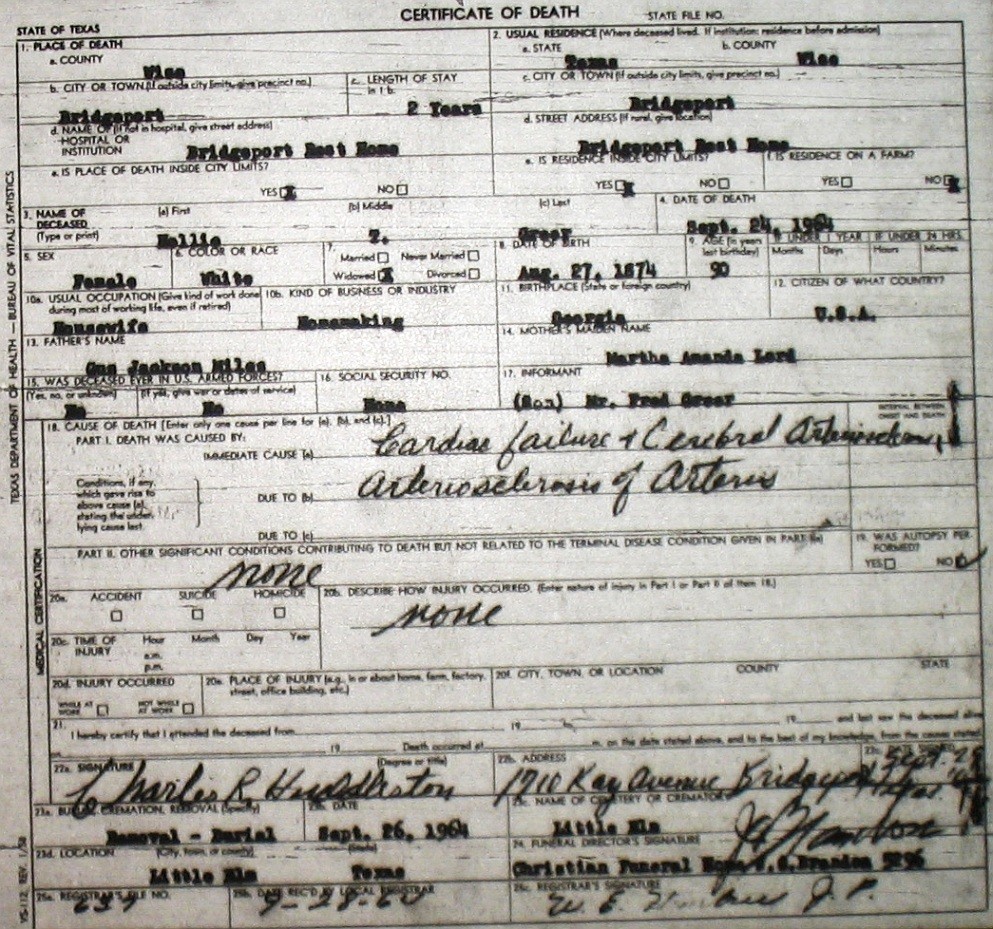 CERTIFICATE OF DEATH STATE FILE NO.
STATE OF TEXAS
1. PLACE OF DEATH
a. COUNTY
Wise
2. USUAL RESIDENCE (Where deceased lived. If institution: residence before admission)
a. STATE b. COUNTY
Texas Wise
b. CITY OR TOWN (If outside city limits, give precinct no.) c. LENGTH OF STAY in 1b.
Bridgeport 2 Years
c. CITY OR TOWN (If outside city limits, give precinct no.)
Bridgeport
d. NAME OF (If not in hospital, give street address)
HOSPITAL OR
INSTITUTION Bridgeport Rest Home
d. STREET ADDRESS (If rural, give location)
Bridgeport Rest Home
e. IS PLACE OF DEATH INSIDE CITY LIMITS?
YES X NO
e. IS RESIDENCE INSIDE CITY LIMITS?
YES X NO
f. IS RESIDENCE ON A FARM?
YES NO X
3. NAME OF DECEASED (Type or print)
(a) First (b) Middle (c) Last
T. Greer
4. DATE OF DEATH
Sept. 24, 1964
5. SEX
Female
6. COLOR OR RACE
White
7. Married Never Married
Widowed X Divorced
8. DATE OF BIRTH
Aug. 27, 1874
9. AGE (In years last birthday)
90
IF UNDER 1 YEAR IF UNDER 24 HRS.
Months Days Hours Minutes
10a. USUAL OCCUPATION (Give kind of work done during most of working life, even if retired)
Housewife
10b. KIND OF BUSINESS OR INDUSTRY
Homemaking
11. BIRTHPLACE (State or foreign country)
Georgia
12. CITIZEN OF WHAT COUNTRY?
U.S.A.
13. FATHER'S NAME
Gus Jackson Miles
14. MOTHER'S MAIDEN NAME
Martha Amanda Lord
15. WAS DECEASED EVER IN U.S. ARMED FORCES?
(Yes, no, or unknown) (If yes, give war or dates of service)
No No
16. SOCIAL SECURITY NO.
None
17. INFORMANT
(Son) Mr. Fred Greer
18. CAUSE OF DEATH [Enter only one cause per line for (a), (b), and (c).]
INTERVAL BETWEEN ONSET AND DEATH
PART I. DEATH WAS CAUSED BY:
IMMEDIATE CAUSE (a) Cardiac failure + Cerebral Arteriosclerosis
Conditions, if any, which gave rise to above cause (a), stating the underlying cause last.
DUE TO (b) Arteriosclerosis of Arteries
DUE TO (c)
PART II. OTHER SIGNIFICANT CONDITIONS CONTRIBUTING TO DEATH BUT NOT RELATED TO THE TERMINAL DISEASE CONDITION GIVEN IN PART I(a)
none
19. WAS AUTOPSY PERFORMED?
YES NO
20a. ACCIDENT SUICIDE HOMICIDE
20b. DESCRIBE HOW INJURY OCCURRED. (Enter nature of injury in Part I or Part II of item 18.)
none
20c. TIME OF INJURY Hour Month Day Year
a.m.
p.m.
20d. INJURY OCCURRED
WHILE AT WORK NOT WHILE AT WORK
20e. PLACE OF INJURY (e.g., in or about home, farm, factory, street, office building, etc.)
20f. CITY, TOWN, OR LOCATION COUNTY STATE
21. I hereby certify that I attended the deceased from 19 19 and last saw the deceased alive
19 Death occurred at m. on the date stated above, and to the best of my knowledge, from the causes stated.
22a. SIGNATURE (Degree or title)
Charlie R Huddleston
22b. ADDRESS
1710 Ray Avenue Bridgeport
22c. DATE SIGNED
Sept.
23a. BURIAL, CREMATION, REMOVAL (Specify)
Removal - Burial
23b. DATE
Sept. 26, 1964
23c. NAME OF CEMETERY OR CREMATORY
Little Elm
23d. LOCATION (City, town, or county) (State)
Little Elm Texas
24. FUNERAL DIRECTOR'S SIGNATURE
Christian Funeral Home 5296
25a. REGISTRAR'S FILE NO.
25b. DATE REC'D BY LOCAL REGISTRAR
25c. REGISTRAR'S SIGNATURE
W. E. J. P.
TEXAS DEPARTMENT OF HEALTH — BUREAU OF VITAL STATISTICS
MEDICAL CERTIFICATION
VS-112, REV. 1/58